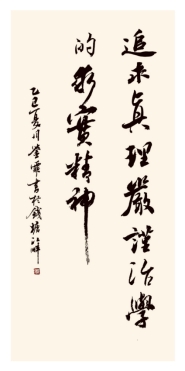 追求真理嚴謹治學
的求實精神
乙巳夏月書於錢塘江畔